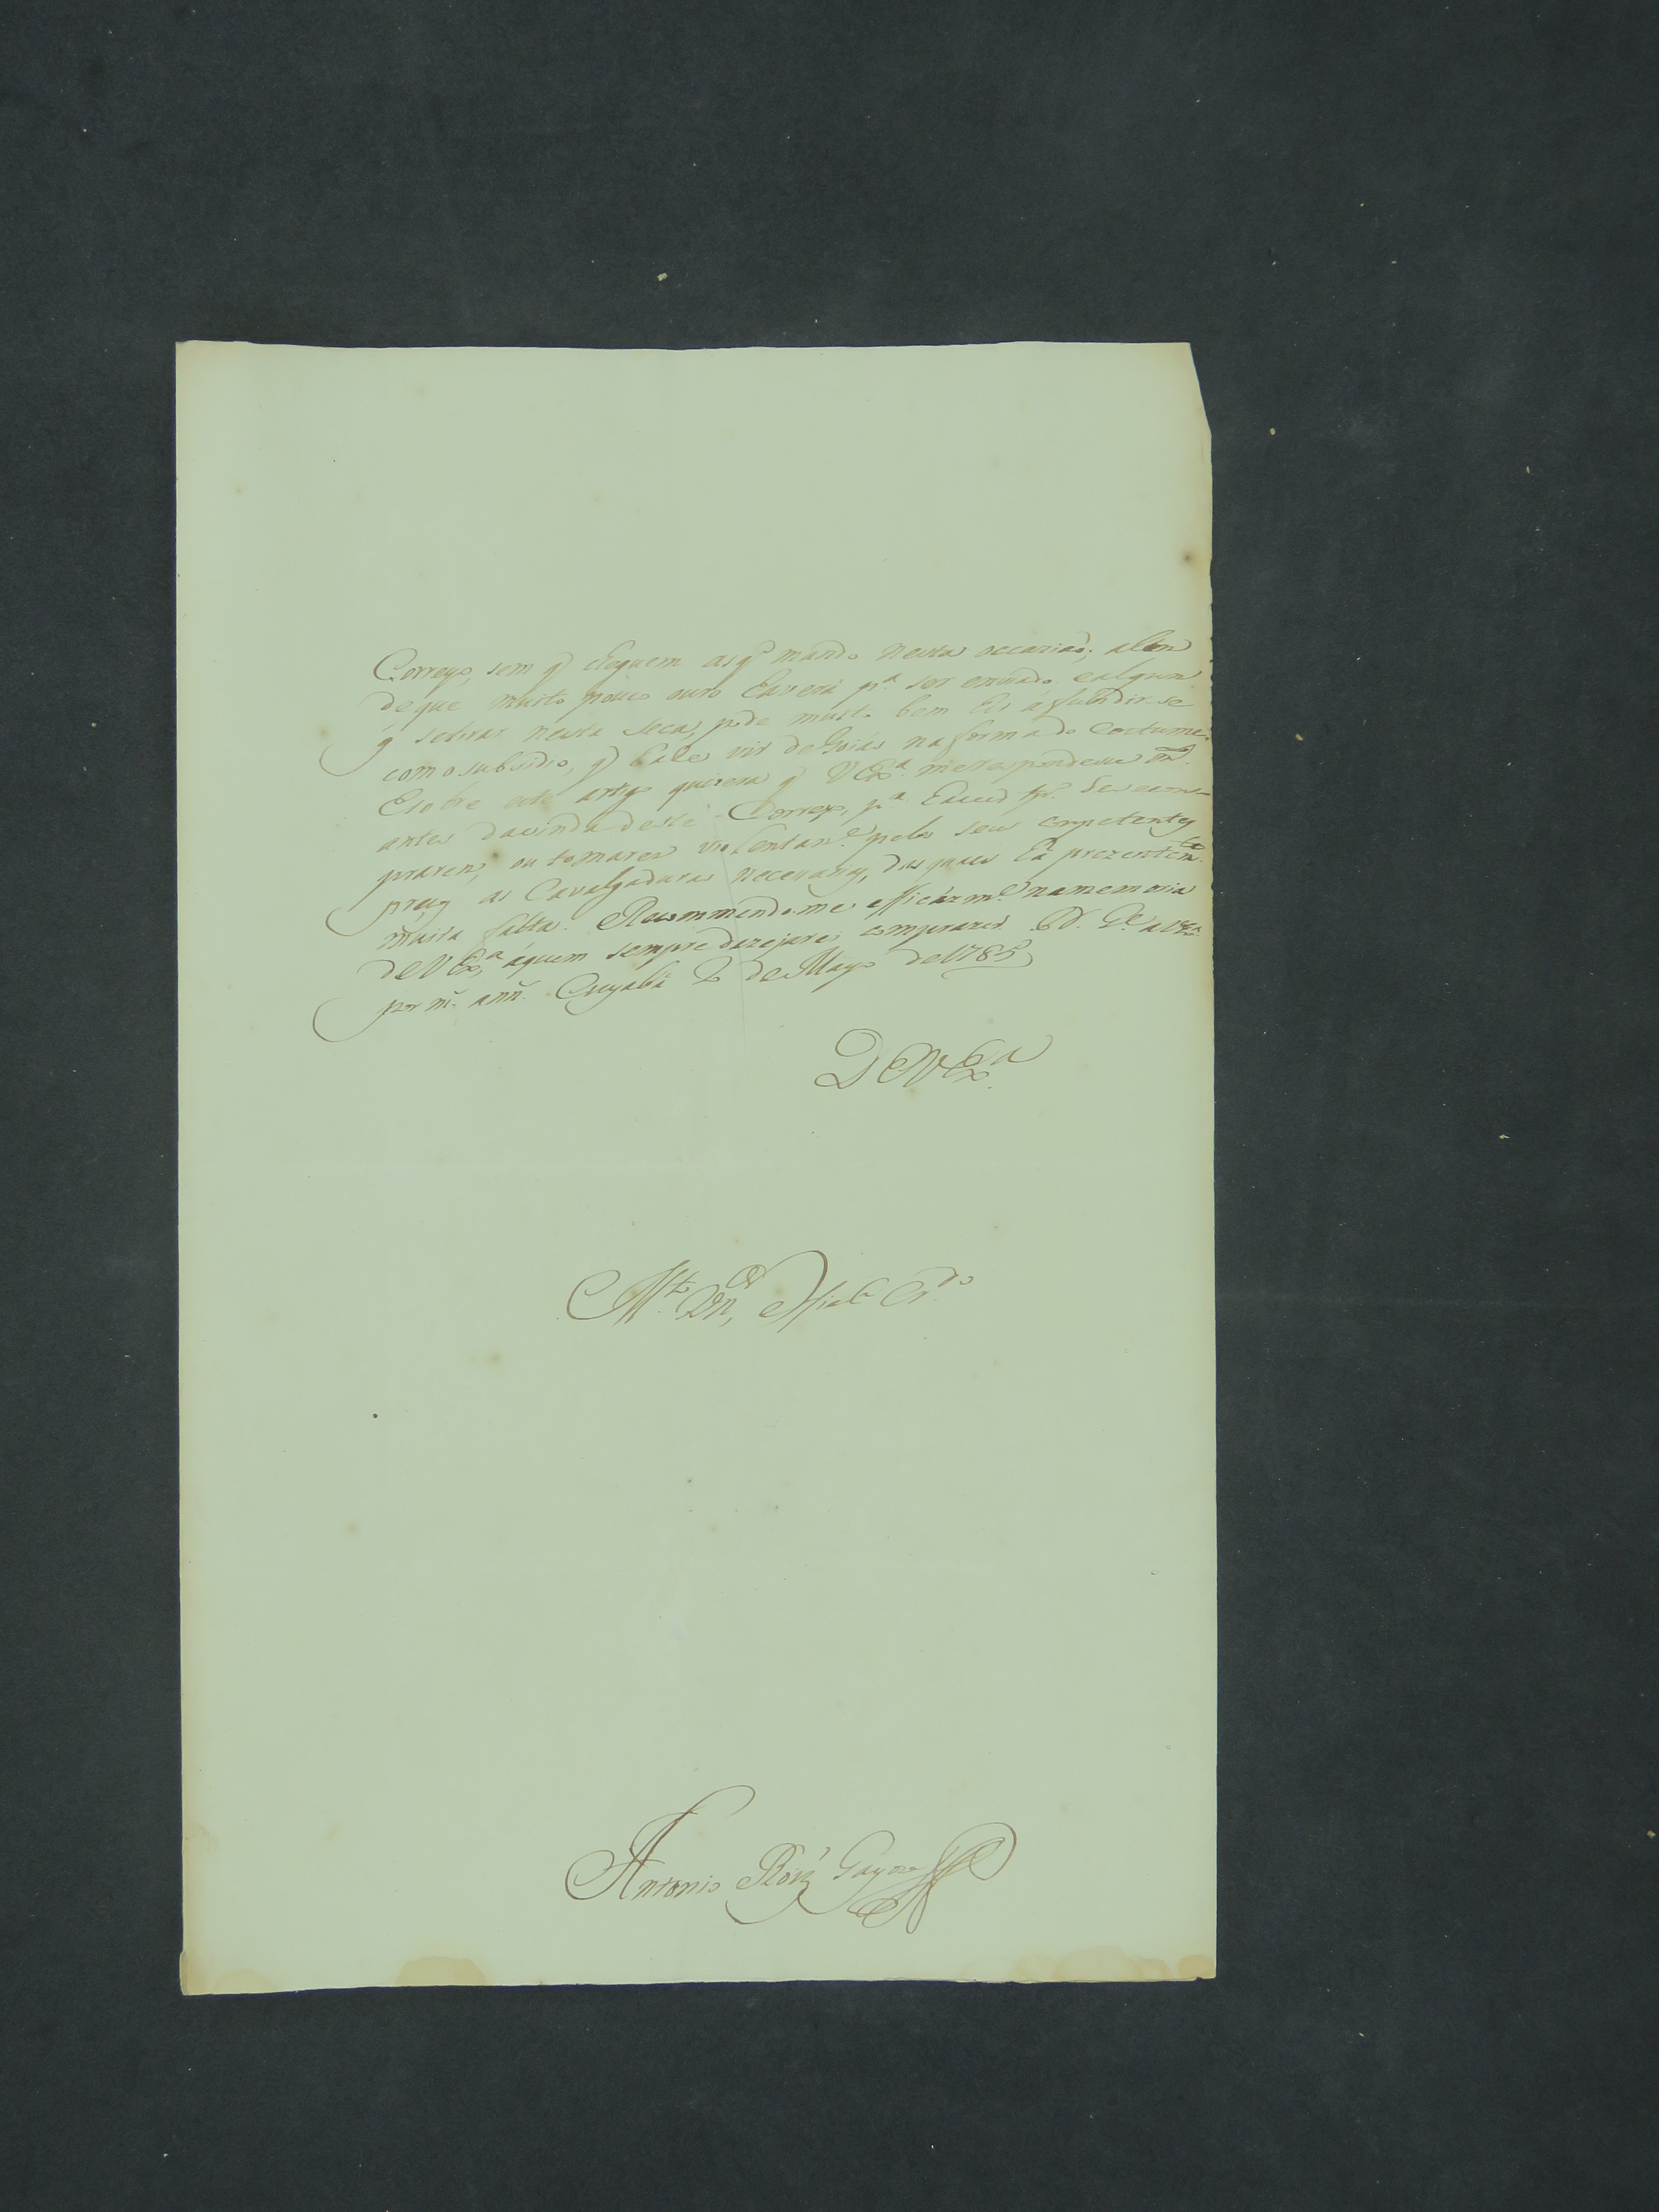 Correyo, sem q̃ cheguem as q̃ mando nesta occaziaõ; alem
de que muito pouco ouro haverá p.ª ser enviado e algum
q̃ setirar nesta seca, pode muito bem hir á fundir-se
com o subsidio, q̃ hade vir de Goiás na forma do costume.
E sobre este artigo quizera q̃ V Ex.ª me respondesse
antes da vinda deste Correyo, p.ª haver tp.º de se com-
prarem, ou tomarem violentam.e pelos seus competentes
preços as Cavalgaduras necessarias, das quaes há prezentem.te
muita falta. Recommendo-me efficázm.e na memoria
de V Ex.ª, áquem sempre dezejarei comprazer. D. G.e a V Ex.ª
por m.s ann.s Cuyabá 2 de Mayo de 1785
De V Ex.ª
M.to Ven.or e fiel Cr.do
Antonio Roiz' Gayozo